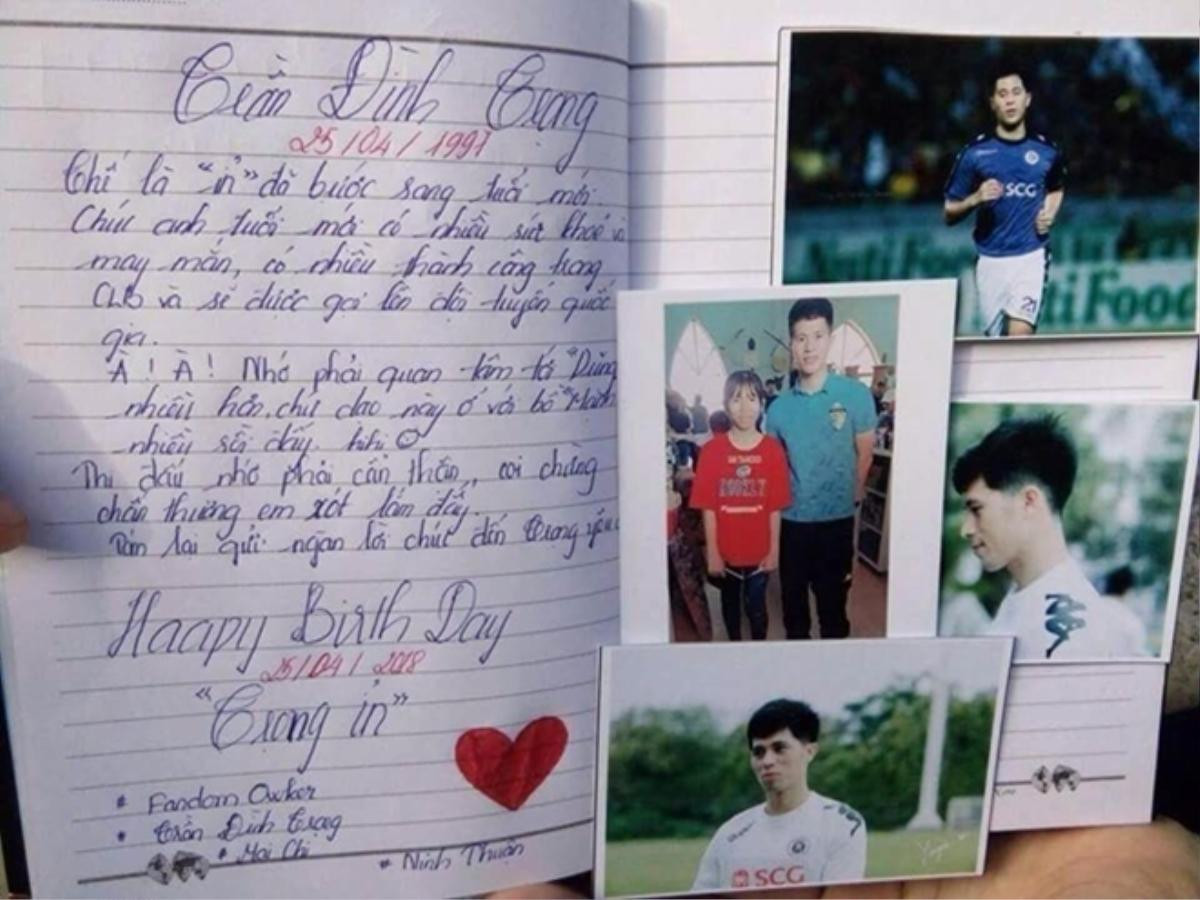 Trần Đình Trọng
25/04/1997
Thế là "ỉn" đã bước sang tuổi mới.
Chúc anh tuổi mới có nhiều sức khoẻ và
may mắn, có nhiều thành công trong
Clb và sẽ được gọi lên đội tuyển quốc
gia.
À! À! Nhớ phải quan tâm tới "Dũng
nhiều hơn chứ dạo này ổ với bồ "Mạnh
nhiều rồi đấy. hihi
Thi đấu nhớ phải cẩn thận, coi chừng
chấn thương em xót lắm đấy.
Tóm lại gửi ngàn lời chúc đến Trọng yêu
Haapy Birth Day
25/04/2018
"Trọng ỉn"
* Fandom Cucker
* Trần Đình Trọng
* Mai Chi
* Ninh Thuận
SCG
21
Nuti Food
SCG